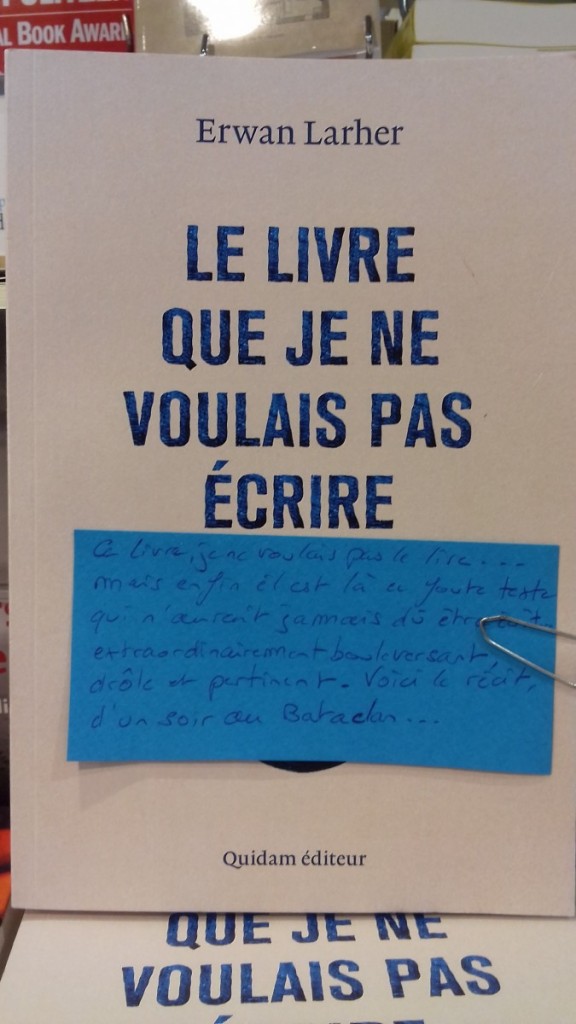 AL BOOK AWAR
Erwan Larher
LE LIVRE
QUE JE NE
VOULAIS PAS
ÉCRIRE
Ce livre, je ne voulais pas le lire...
mais enfin il est là ce texte
qui n'aurait jamais dû être
extraordinairement bouleversant,
drôle et pertinent. Voici le récit,
d'un soir au Bataclan...
Quidam éditeur
QUE JE NE
VOULAIS PAS